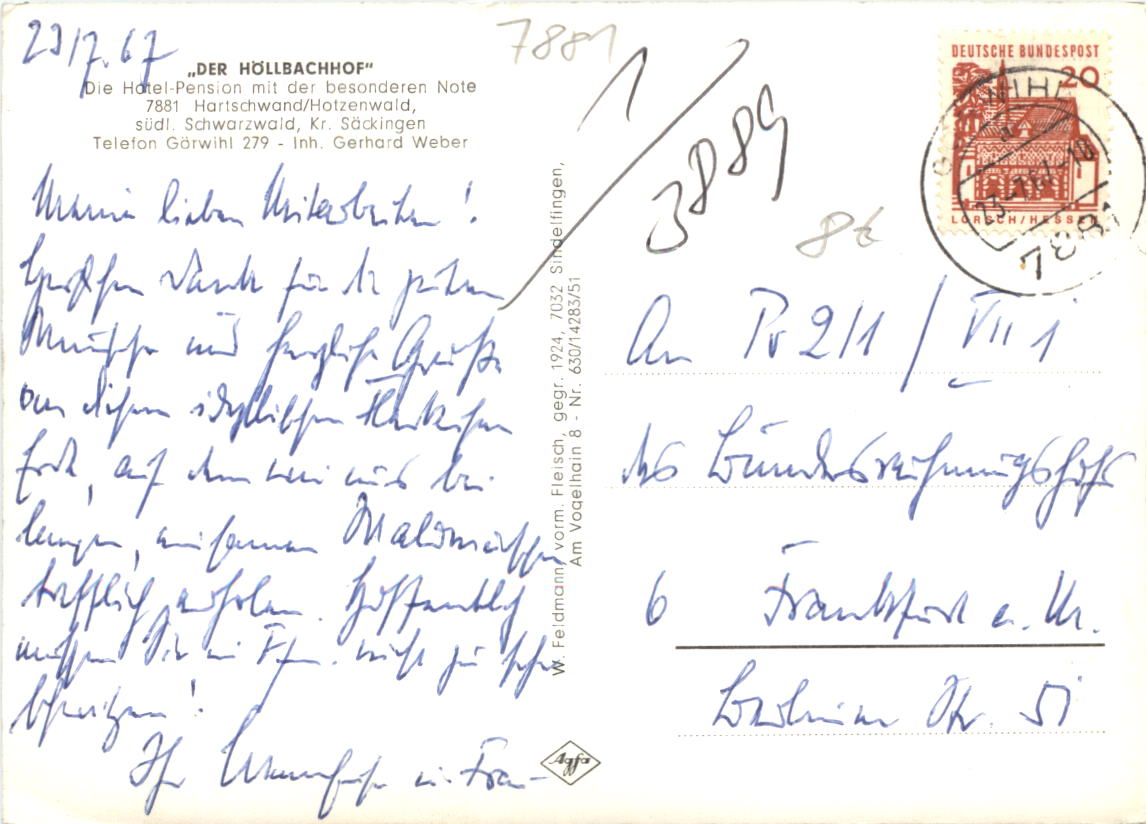 23/7.67
„DER HÖLLBACHHOF“
Die Hotel-Pension mit der besonderen Note
7881 Hartschwand/Hotzenwald,
südl. Schwarzwald, Kr. Säckingen
Telefon Görwihl 279 - Inh. Gerhard Weber
Meine lieben Mitarbeiter!
Herzlichen Dank für die guten
Wünsche und herzliche Grüße
von diesem idyllischen
Erde, auf dem wir uns bei
langen, einsamen Waldmärschen
trefflich erholen. Hoffentlich
müssen Sie in Ffm. nicht zu sehr
schwitzen!
Ihr u. Frau
W. Feldmann, vorm. Fleisch, gegr. 1924, 7032 Sindelfingen,
Am Vogelhain 8 - Nr. 630/14283/51
Agfa
7881
1/
3889
8€
DEUTSCHE BUNDESPOST
20
LORSCH/HESSEN
7881
An Pr 2/1 / VII 1
des Bundesrechnungshofs
6 Frankfurt a. M.
Berliner Str. 51